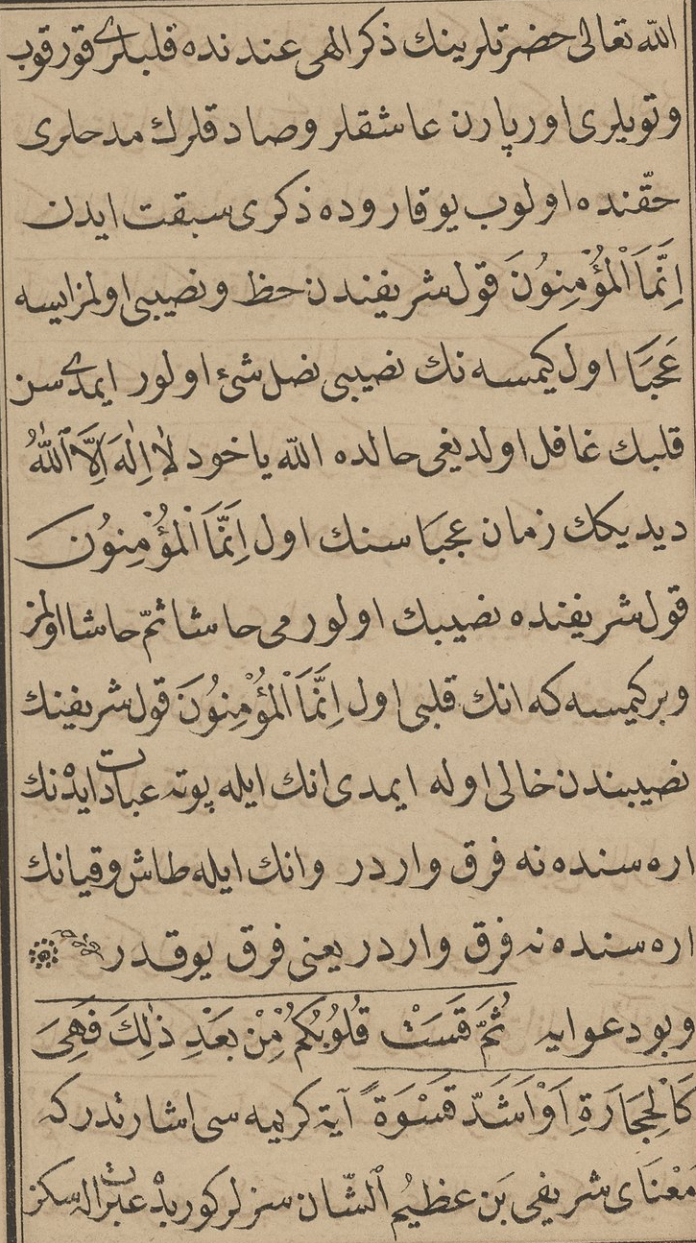 الله تعالى حضرتلرينك ذكر الهى عندنده قلبلرى قورقوب
وتويلرى اورپارن عاشقلر وصادقلرك مدحلرى
حقّنده اولوب يوقاروده ذكرى سبقت ايدن
اِنَّمَا الْمُؤْمِنُونَ قول شريفندن حظ ونصيبى اولمز ايسه
عَجَبَا اول كيمسه نك نصيبى نصل شئ اولور ايمدى سن
قلبك غافل اولديغى حالده الله ياخود لٰا اِلٰهَ اِلَّا اللّٰهُ
ديديكك زمان عجبَا سنك اول اِنَّمَا الْمُؤْمِنُونَ
قول شريفنده نصيبك اولورمى حاشا ثمّ حاشا اولمز
وبر كيمسه كه انك قلبى اول اِنَّمَا الْمُؤْمِنُونَ قول شريفينك
نصيبندن خالى اوله ايمدى انك ايله پوته عبادت ايدنك
اره سنده نه فرق واردر وانك ايله طاش وقيانك
اره سنده نه فرق واردر يعنى فرق يوقدر
وبو دعوايه ثُمَّ قَسَتْ قُلُوبُكُمْ مِنْ بَعْدِ ذٰلِكَ فَهِىَ
كَالْحِجَارَةِ اَوْ اَشَدّ قَسْوَةً آية كريمه سى اشارتدركه
مَعْنَاى شريفى بَن عظيمُ الشّان سزلر كوريڭ عبرت الڭ سكز